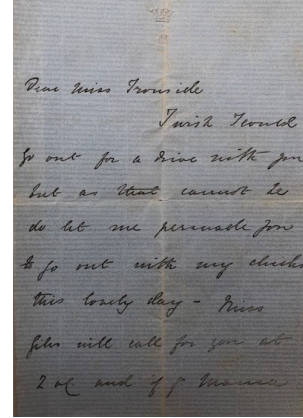 Dear Miss Ironside
I wish I could
go out for a drive with you
but as that cannot be
do let me persuade you
to go out with my chicks
this lovely day - Miss
will call for you at
2 ocl and if y Mama